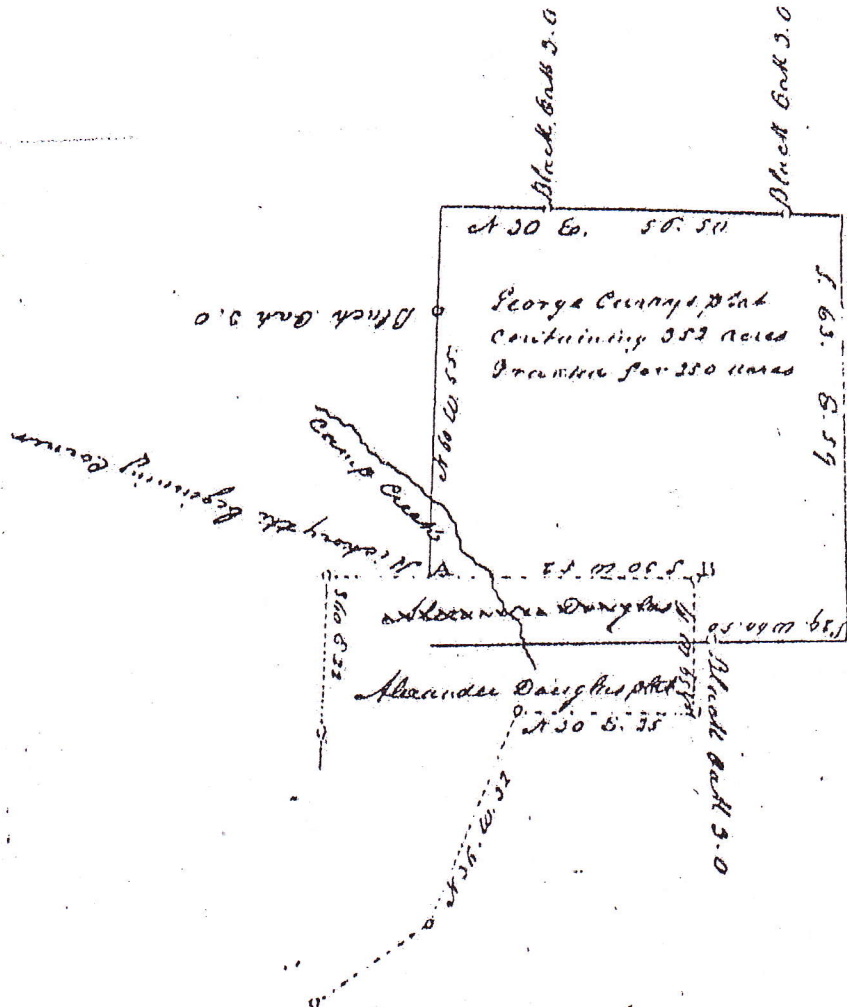 Black Oak 3.0
Black Oak 3.0
N 30 E. 56.50
S. 63. E. 59
George Currys plat
Containing 352 acres
Granted for 350 acres
Black Oak 3.0
N 60 W. 55
Camp Creek
Hickory the begining Corner
A
S 30 W 52
Alexander Douglas
S 29. W 60.50
S 60 E 32
Alexander Douglas plat
N 30 E. 35
Black Oak 3.0
N 36. W. 32